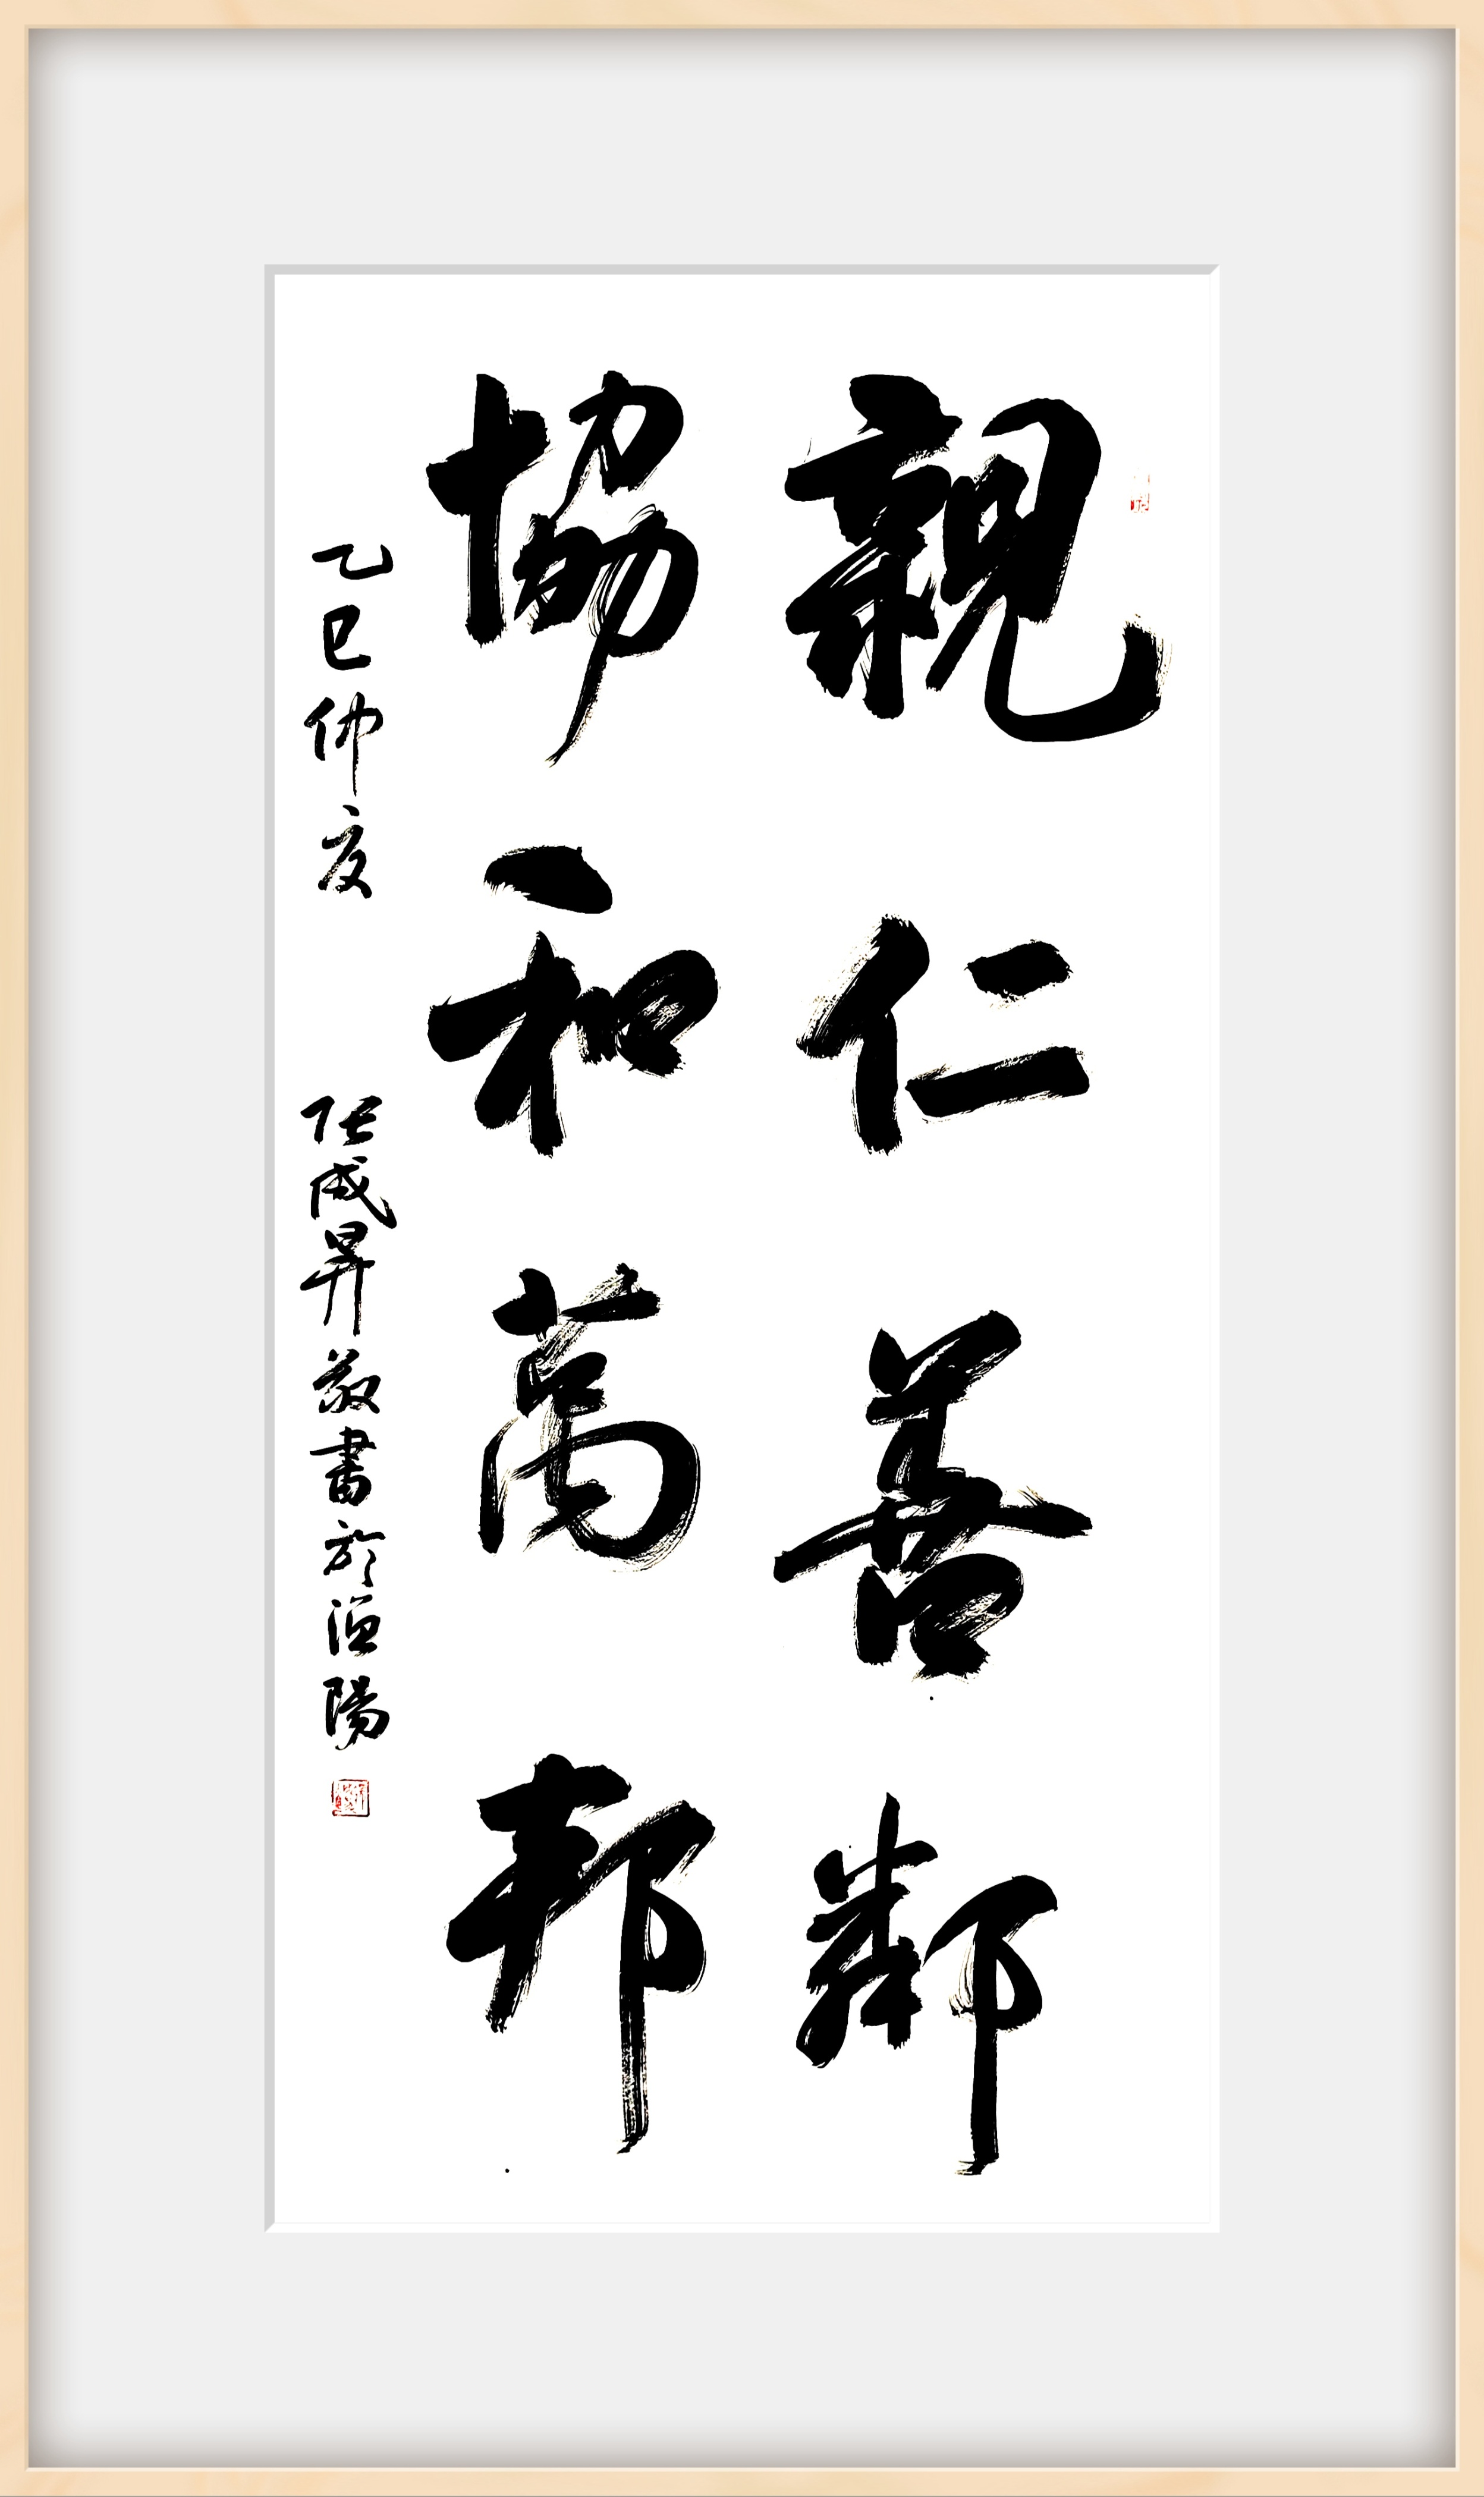 親仁善鄰
協和萬邦
乙巳仲夏 任成昇敬書於漁陽